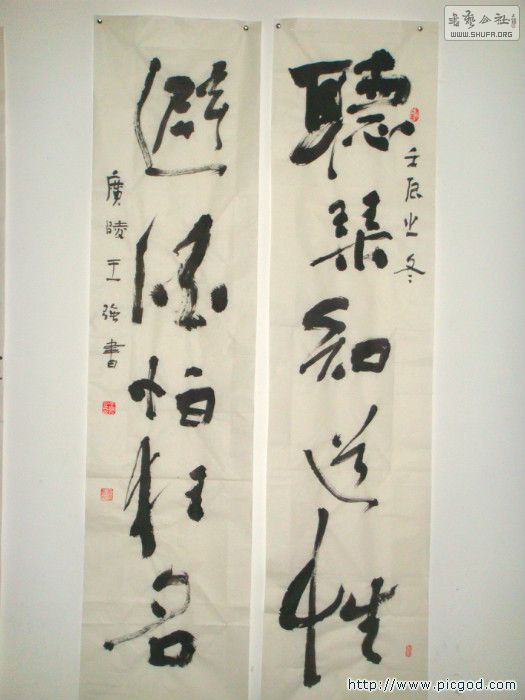 書藝公社
WWW.SHUFA.ORG
聽琴知道性
壬辰之冬
避酒怕狂名
廣陵王強書
http://www.picgod.com